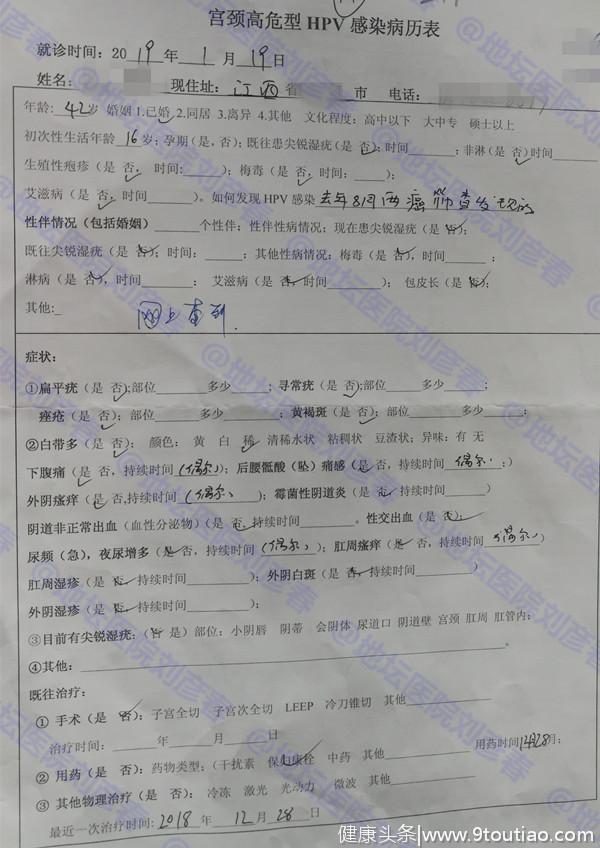 宫颈高危型 HPV 感染病历表
就诊时间：2019年1月19日
姓名： 现住址：江西省 市 电话：
年龄：42岁 婚姻 1.已婚 2.同居 3.离异 4.其他 文化程度：高中以下 大中专 硕士以上
初次性生活年龄 16 岁；孕期（是，否）；既往患尖锐湿疣（是 否；时间______；非淋（是 否）时间____
生殖性疱疹（是 否， 时间：____）；梅毒（是 否， 时间：____）；
艾滋病（是 否，时间______）。如何发现 HPV 感染 去年8月两癌筛查发现的
性伴情况（包括婚姻）______个性伴；性伴性病情况；现在患尖锐湿疣（是 否）；
既往尖锐湿疣（是 否）；时间：______； 其他性病情况：梅毒（是 否），时间______ ；
淋病（是 否），时间______； 艾滋病（是 否，时间______）； 包皮长（是 否）；
其他:_ 网上查到.
症状：
①扁平疣（是 否）;部位______多少_____； 寻常疣（是 否）;部位_____多少_____；
痤疮（是 否）；部位______多少______； 黄褐斑（是 否）；部位______
②白带多（是 否）； 颜色： 黄 白 稀 清稀水状 粘稠状 豆渣状；异味：有 无
下腹痛（是 否，持续时间（偶尔））；后腰骶酸（坠）痛感（是 否，持续时间 偶尔 ；）
外阴瘙痒（是 否,持续时间（偶尔）____）；霉菌性阴道炎（是 否，持续时间______）
阴道非正常出血（血性分泌物）（是 否，持续时间______。性交出血（是 否）；
尿频（急），夜尿增多（是 否，持续时间（偶尔））；肛周瘙痒（是 否，持续时间（偶尔）
肛周湿疹（是 否，持续时间______）；外阴白斑（是 否，持续时间______）
外阴湿疹（是 否，持续时间______）；
③目前有尖锐湿疣：（否 是）部位：小阴唇 阴蒂 会阴体 尿道口 阴道壁 宫颈 肛周 肛管内：
④其他：____________。
既往治疗：
① 手术（是 否）：子宫全切 子宫次全切 LEEP 冷刀锥切 其他______
治疗时间：______年______月______日
② 用药（是 否）：药物类型：（干扰素 保妇康栓 中药 其他______ 用药时间
③ 其他物理治疗（是 否）： 冷冻 激光 光动力 微波 其他______
最近一次治疗时间：2018年12月28日
@地坛医院刘彦春
健康头条/www.9toutiao.com